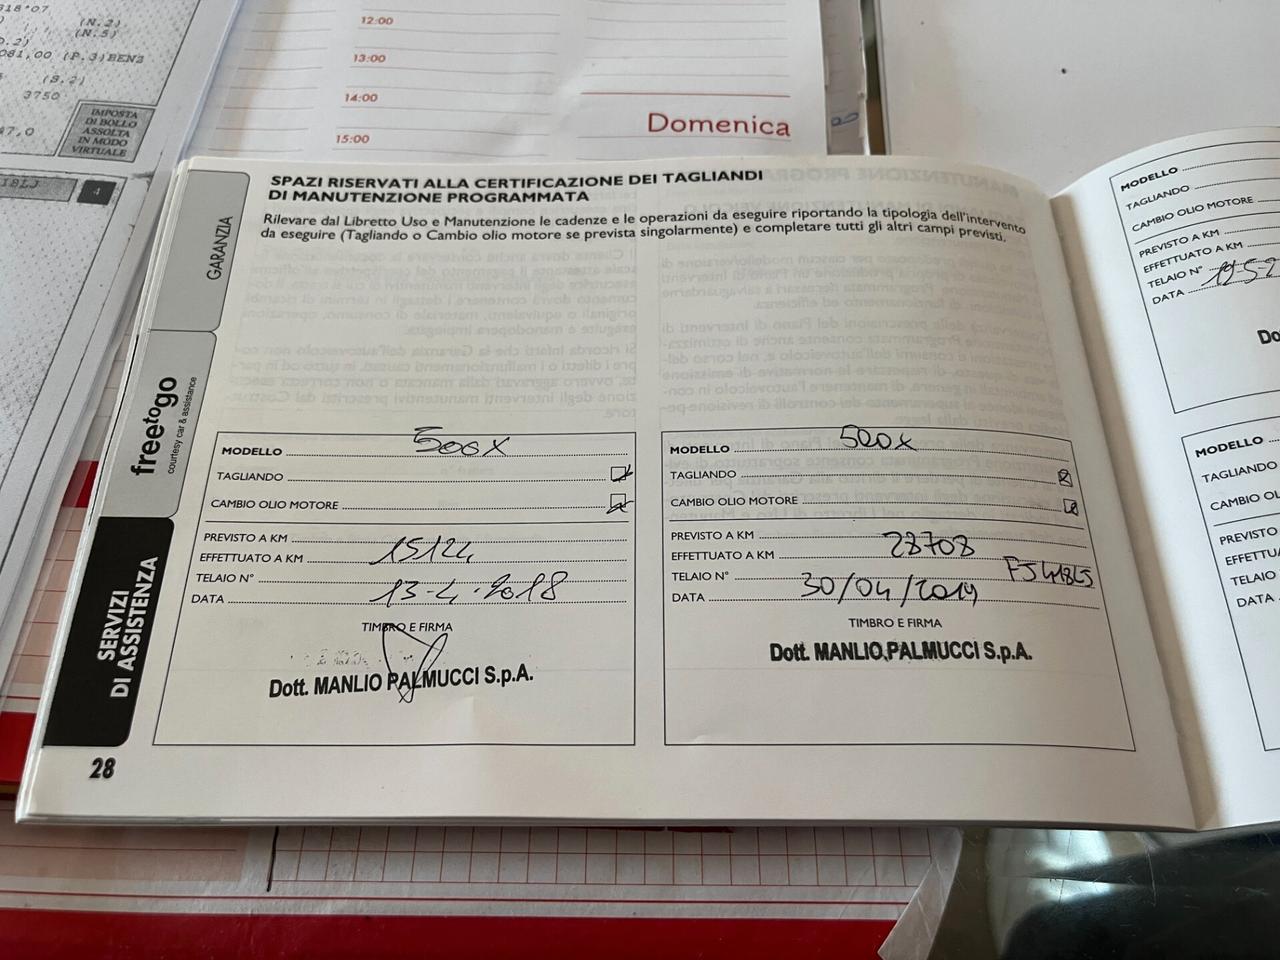 318*07
(N.2)
(N.5)
081,00 (P.3)BENZ
(S.2)
3750
IMPOSTA
DI BOLLO
ASSOLTA
IN MODO
VIRTUALE
4
12:00
13:00
14:00
15:00
Domenica
GARANZIA
freetogo
courtesy car & assistance
SERVIZI
DI ASSISTENZA
SPAZI RISERVATI ALLA CERTIFICAZIONE DEI TAGLIANDI
DI MANUTENZIONE PROGRAMMATA
Rilevare dal Libretto Uso e Manutenzione le cadenze e le operazioni da eseguire riportando la tipologia dell'intervento
da eseguire (Tagliando o Cambio olio motore se prevista singolarmente) e completare tutti gli altri campi previsti.
MODELLO 500X
TAGLIANDO
CAMBIO OLIO MOTORE
PREVISTO A KM
EFFETTUATO A KM 15124
TELAIO N°
DATA 13-4-2018
TIMBRO E FIRMA
Dott. MANLIO PALMUCCI S.p.A.
MODELLO 500X
TAGLIANDO
CAMBIO OLIO MOTORE
PREVISTO A KM
EFFETTUATO A KM 28708
TELAIO N°
DATA 30/04/2019
TIMBRO E FIRMA
Dott. MANLIO PALMUCCI S.p.A.
28
MODELLO
TAGLIANDO
CAMBIO OLIO MOTORE
PREVISTO A KM
EFFETTUATO A KM
TELAIO N°
DATA
MODELLO
TAGLIANDO
CAMBIO OL
PREVISTO
EFFETTU
TELAIO
DATA